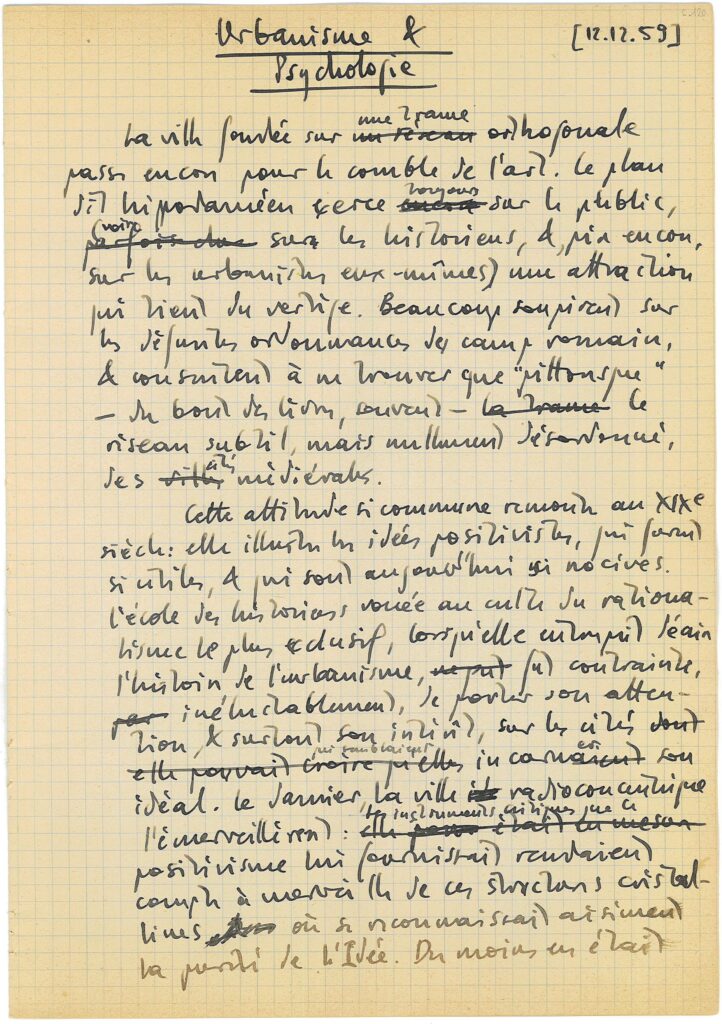 c.120
Urbanisme &
Psychologie
[12.12.59]
une trame
La ville fondée sur un réseau orthogonale
passe encore pour le comble de l'art. Le plan
toujours
dit hippodaméen exerce encore sur le public,
(voire
parfois sur les historiens, &, pis encore,
sur les urbanistes eux-mêmes) une attraction
qui tient du vertige. Beaucoup soupirent sur
les défuntes ordonnances des camps romains,
& consentent à ne trouver que "pittoresque"
– du bout des lèvres, souvent – la trame le
réseau subtil, mais nullement désordonné,
cités
des villes médiévales.
Cette attitude si commune remonte au XIXe
siècle: elle illustre les idées positivistes, qui furent
si utiles, & qui sont aujourd'hui si nocives.
L'école des historiens vouée au culte du rationa-
lisme le plus exclusif, lorsqu'elle entreprit d'écrire
l'histoire de l'urbanisme, ne put fut contrainte,
par inéluctablement, de porter son atten-
tion, & surtout son intérêt, sur les cités dont
qui semblaient
elle pouvait croire qu'elles incarnaient son
idéal. Le damier, la ville radioconcentrique
les instruments critiques que ce
l'émerveillèrent : elle était en mesure
positivisme lui fournissait rendaient
compte à merveille de ces structures cristal-
lines où se reconnaissait aisément
la pureté de l'Idée. Du moins en était